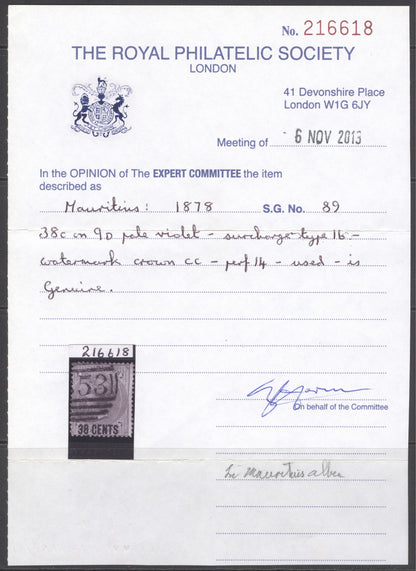 No. 216618
THE ROYAL PHILATELIC SOCIETY
LONDON
41 Devonshire Place
London W1G 6JY
Meeting of - 6 NOV 2013
In the OPINION of The EXPERT COMMITTEE the item
described as
Mauritius: 1878 S.G. No. 89
38c on 9D pale violet - surcharge type 16 -
watermark crown cc - perf 14 - used - is
Genuine.
216618
53
38 CENTS
On behalf of the Committee
In Mauritius album